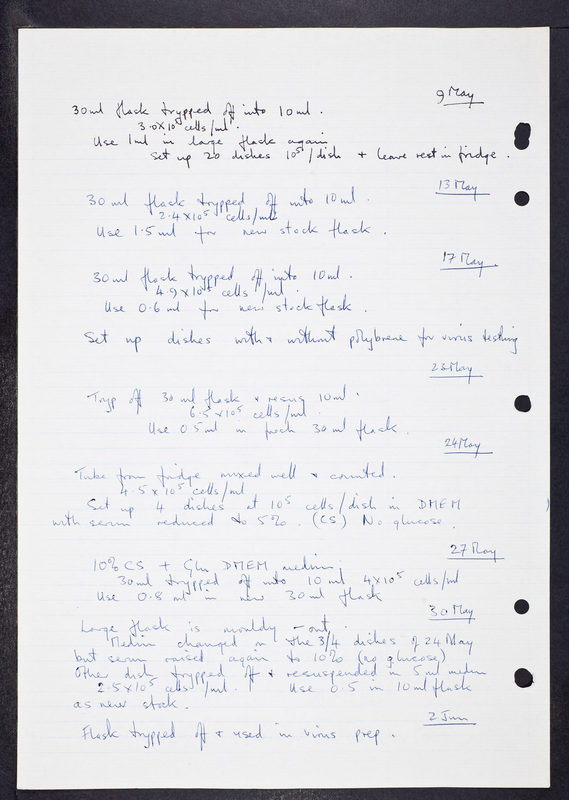 9 May
30ml flask trypped off into 10ml.
3.0x10⁵ cells/ml.
Use 1ml in large flask again
Set up 20 dishes 10⁵/dish + leave rest in fridge.
13 May
30 ml flask trypped off into 10ml.
2.4x10⁵ cells/ml
Use 1.5ml for new stock flask.
17 May
30ml flask trypped off into 10ml.
4.9x10⁵ cells/ml.
Use 0.6 ml for new stock flask.
Set up dishes with + without polybrene for virus testing
23 May
Tryp off 30 ml flask + resus 10ml.
6.5x10⁵ cells/ml.
Use 0.5ml in fresh 30ml flask.
24 May
Tube from fridge mixed well + counted.
4.5x10⁵ cells/ml
Set up 4 dishes at 10⁵ cells/dish in DMEM
with serum reduced to 5%. (CS) No glucose.
27 May
10% CS + Glu DMEM medium.
30ml trypped off into 10 ml 4x10⁵ cells/ml
Use 0.8 ml in new 30ml flask
30 May
Large flask is mouldy - out.
Medium changed on the 3/4 dishes of 24 May
but serum raised again to 10% (no glucose)
Other dish trypped off + resuspended in 5ml medium
2.5x10⁵ cells/ml. Use 0.5 in 10ml flask
as new stock.
2 Jun
Flask trypped off + used in virus prep.